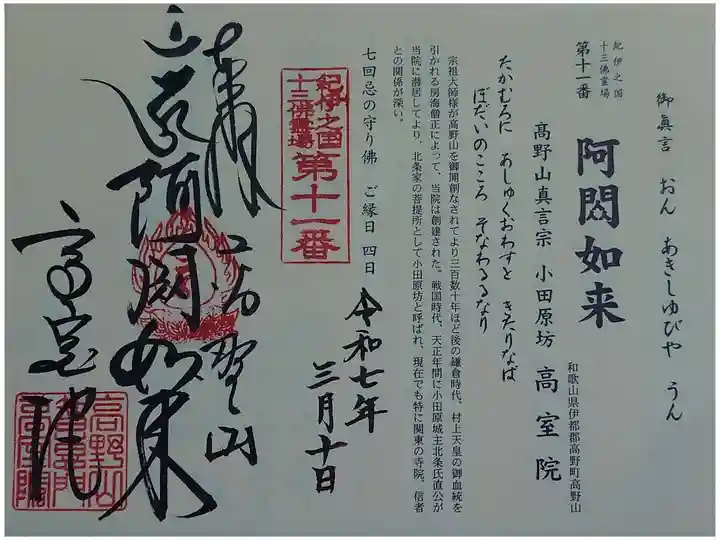 御眞言 おん あきしゅびや うん
紀伊之国
十三佛霊場
第十一番
阿閦如来
和歌山県伊都郡高野町高野山
高野山真言宗 小田原坊 高室院
たかむろに あしゅくおわすと きたりなば
ぼだいのこころ そなわるるなり
宗祖大師様が高野山を御開創なされてより三百数十年ほど後の鎌倉時代、村上天皇の御血統を
引かれる房海僧正によって、当院は創建された。戦国時代、天正年間に小田原城主北条氏直公が
当院に潜居してより、北条家の菩提所として小田原坊と呼ばれ、現在でも特に関東の寺院、信者
との関係が深い。
七回忌の守り佛 ご縁日 四日
令和七年
三月十日
紀伊之国
十三佛霊場
第十一番
奉拝 高野山
阿閦如来
高室院